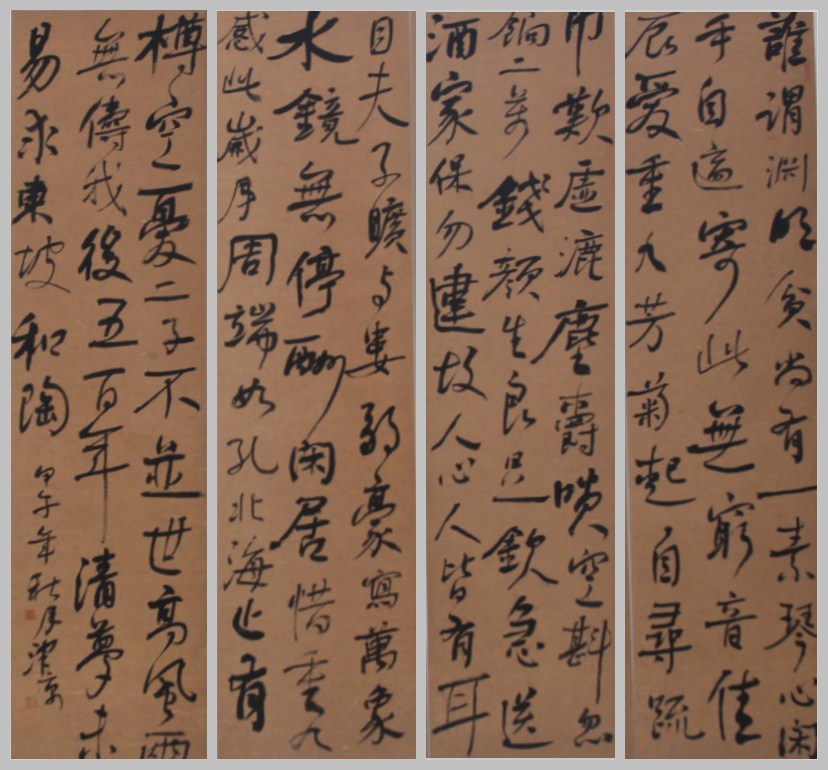 誰謂渊明貧尚有一素琴心閑
手自適寄此無窮音佳
辰愛重九芳菊起自尋疏
巾歎虛漉塵爵咲空斟忽
餉二萬錢顏生良足欽急送
酒家保勿違故人心人皆有耳
目夫子曠与婁弱豪寫萬象
水鏡無停酬閑居惜重九
感此歲月周端如孔北海止有
樽空憂二子不並世高風兩
無儔我後五百年清夢未
易求東坡和陶
甲午年秋月